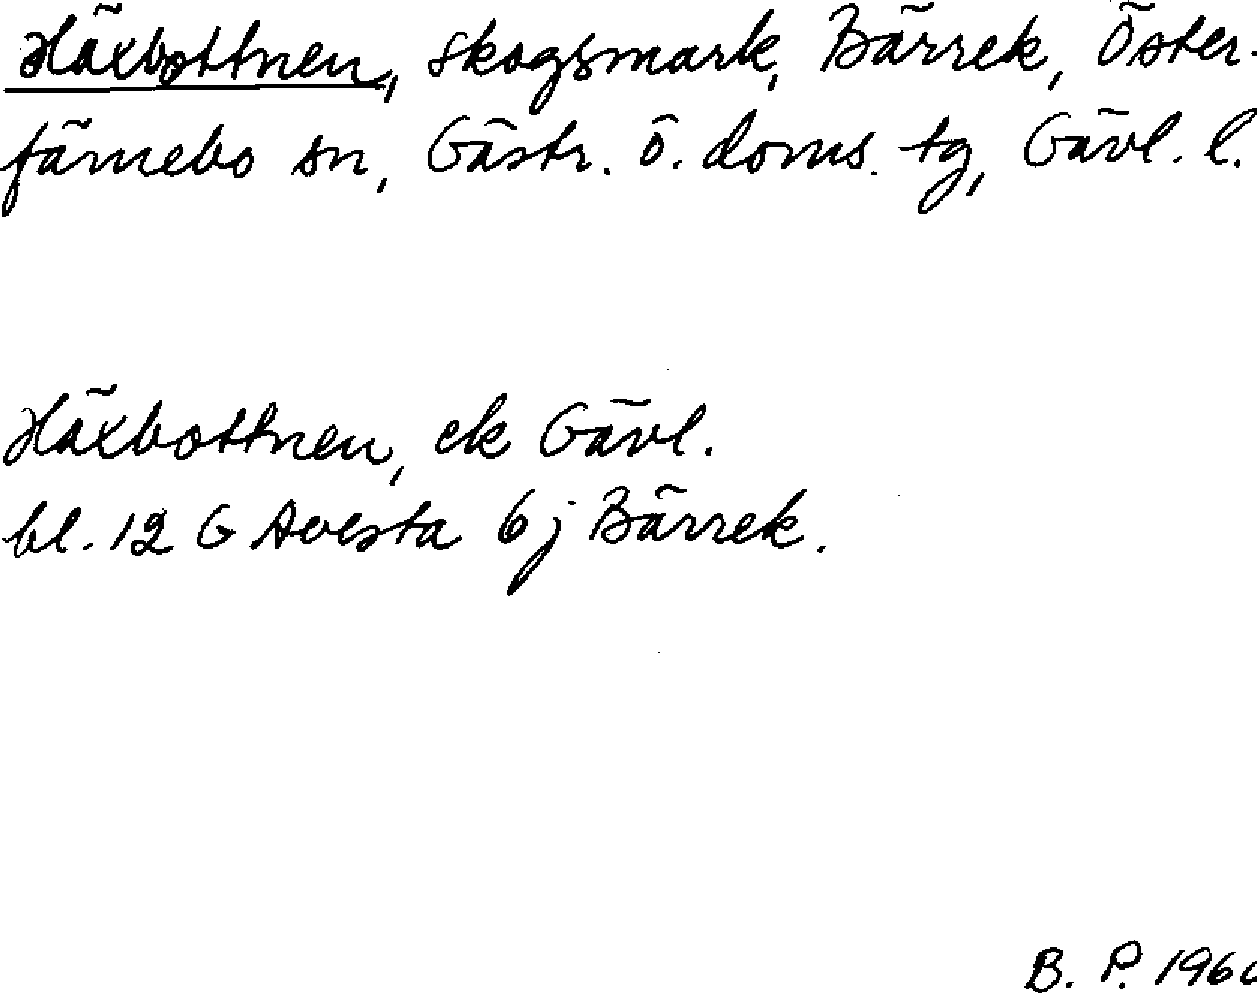 Häxbottnen, skogsmark, Bärrek, Öster-
färnebo sn, Gästr. ö. doms. tg, Gävl. l.
Häxbottnen, ek Gävl.
bl. 12 G Avesta 6 j Bärrek.
B. P.